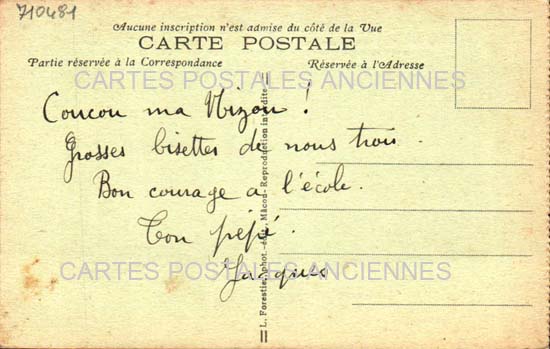 710481
Aucune inscription n'est admise du côté de la Vue
CARTE POSTALE
Partie réservée à la Correspondance
Réservée à l'Adresse
CARTES POSTALES ANCIENNES
Coucou ma Nizou !
Grosses bisettes de nous trois.
Bon courage a l'école.
Ton pépé.
Jacques
CARTES POSTALES ANCIENNES
L. Forestier, phot.-édit., Mâcon - Reproduction interdite